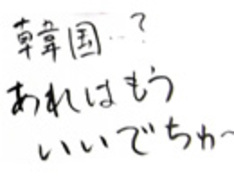 韓国…?
あれはもう
いいでちゅ〜